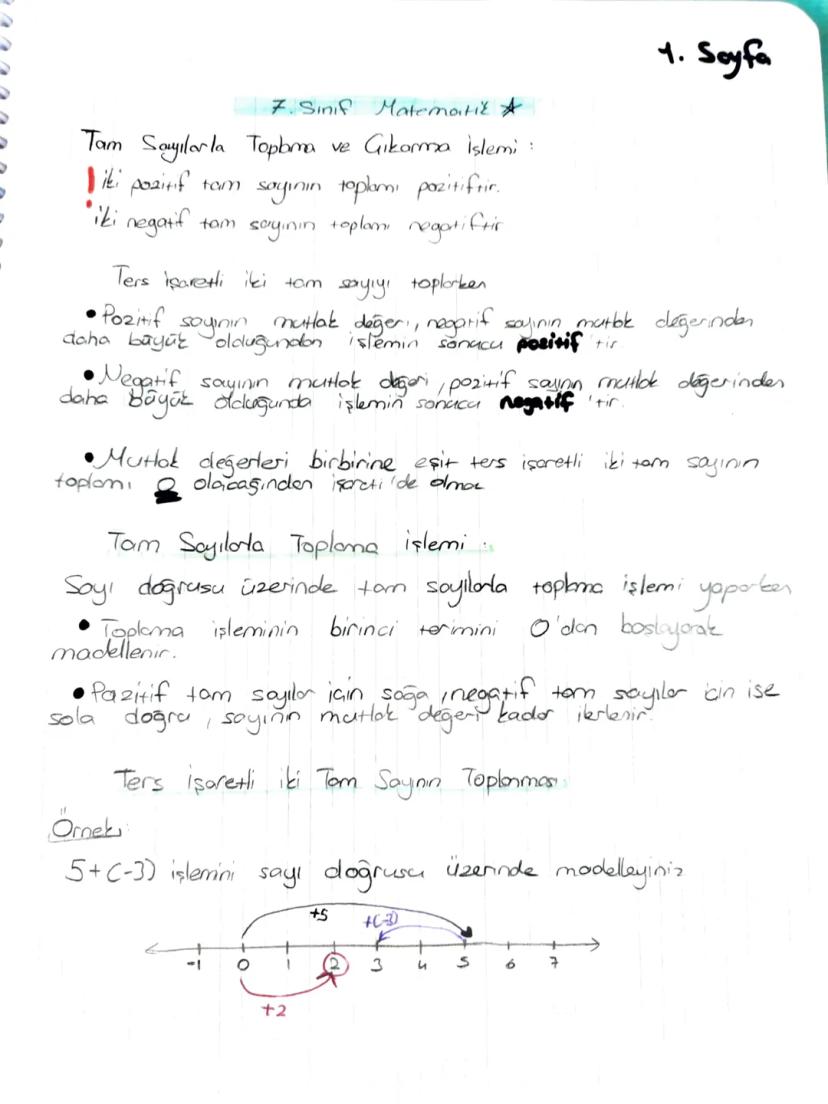 1. Sayfa
7. Sınıf Matematik
Tam Sayılarla Toplama ve Çıkarma İşlemi :
! İki pozitif tam sayının toplamı pozitiftir.
İki negatif tam sayının toplamı negatiftir
Ters işaretli iki tam sayıyı toplarken
• Pozitif sayının mutlak değeri, negatif sayının mutlak değerinden
daha büyük olduğundan işlemin sonucu pozitif 'tir
• Negatif sayının mutlak değeri, pozitif sayının mutlak değerinden
daha büyük olduğunda işlemin sonucu negatif 'tir.
• Mutlak değerleri birbirine eşit ters işaretli iki tam sayının
toplamı 0 olacağından işareti'de olmaz
Tam Sayılarla Toplama işlemi :
Sayı doğrusu üzerinde tam sayılarla toplama işlemi yaparken
• Toplama işleminin birinci terimini 0'dan başlayarak
modellenir.
• Pozitif tam sayılar için sağa, negatif tam sayılar için ise
sola doğru, sayının mutlak değeri kadar ilerlenir.
Ters işaretli iki Tam Sayının Toplanması
Örnek:
5+(-3) işlemini sayı doğrusu üzerinde modelleyiniz
+5 +(-3)
-1 0 1 2 3 4 5 6 7
+2